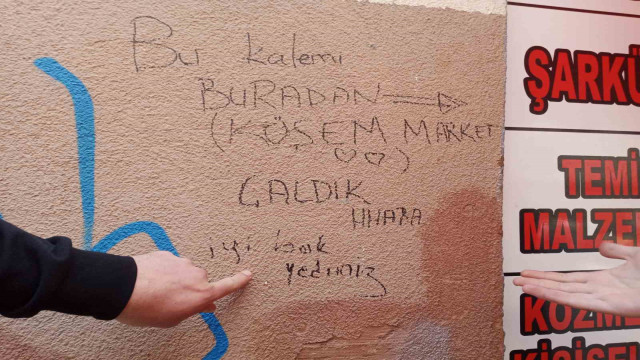 Bu kalemi
BURADAN
(KÖŞEM MARKET
)
ÇALDIK
HHABA
iyi bok
yediniz
ŞARKÜ
TEMİ
MALZE
KOZME
KİŞİSEL